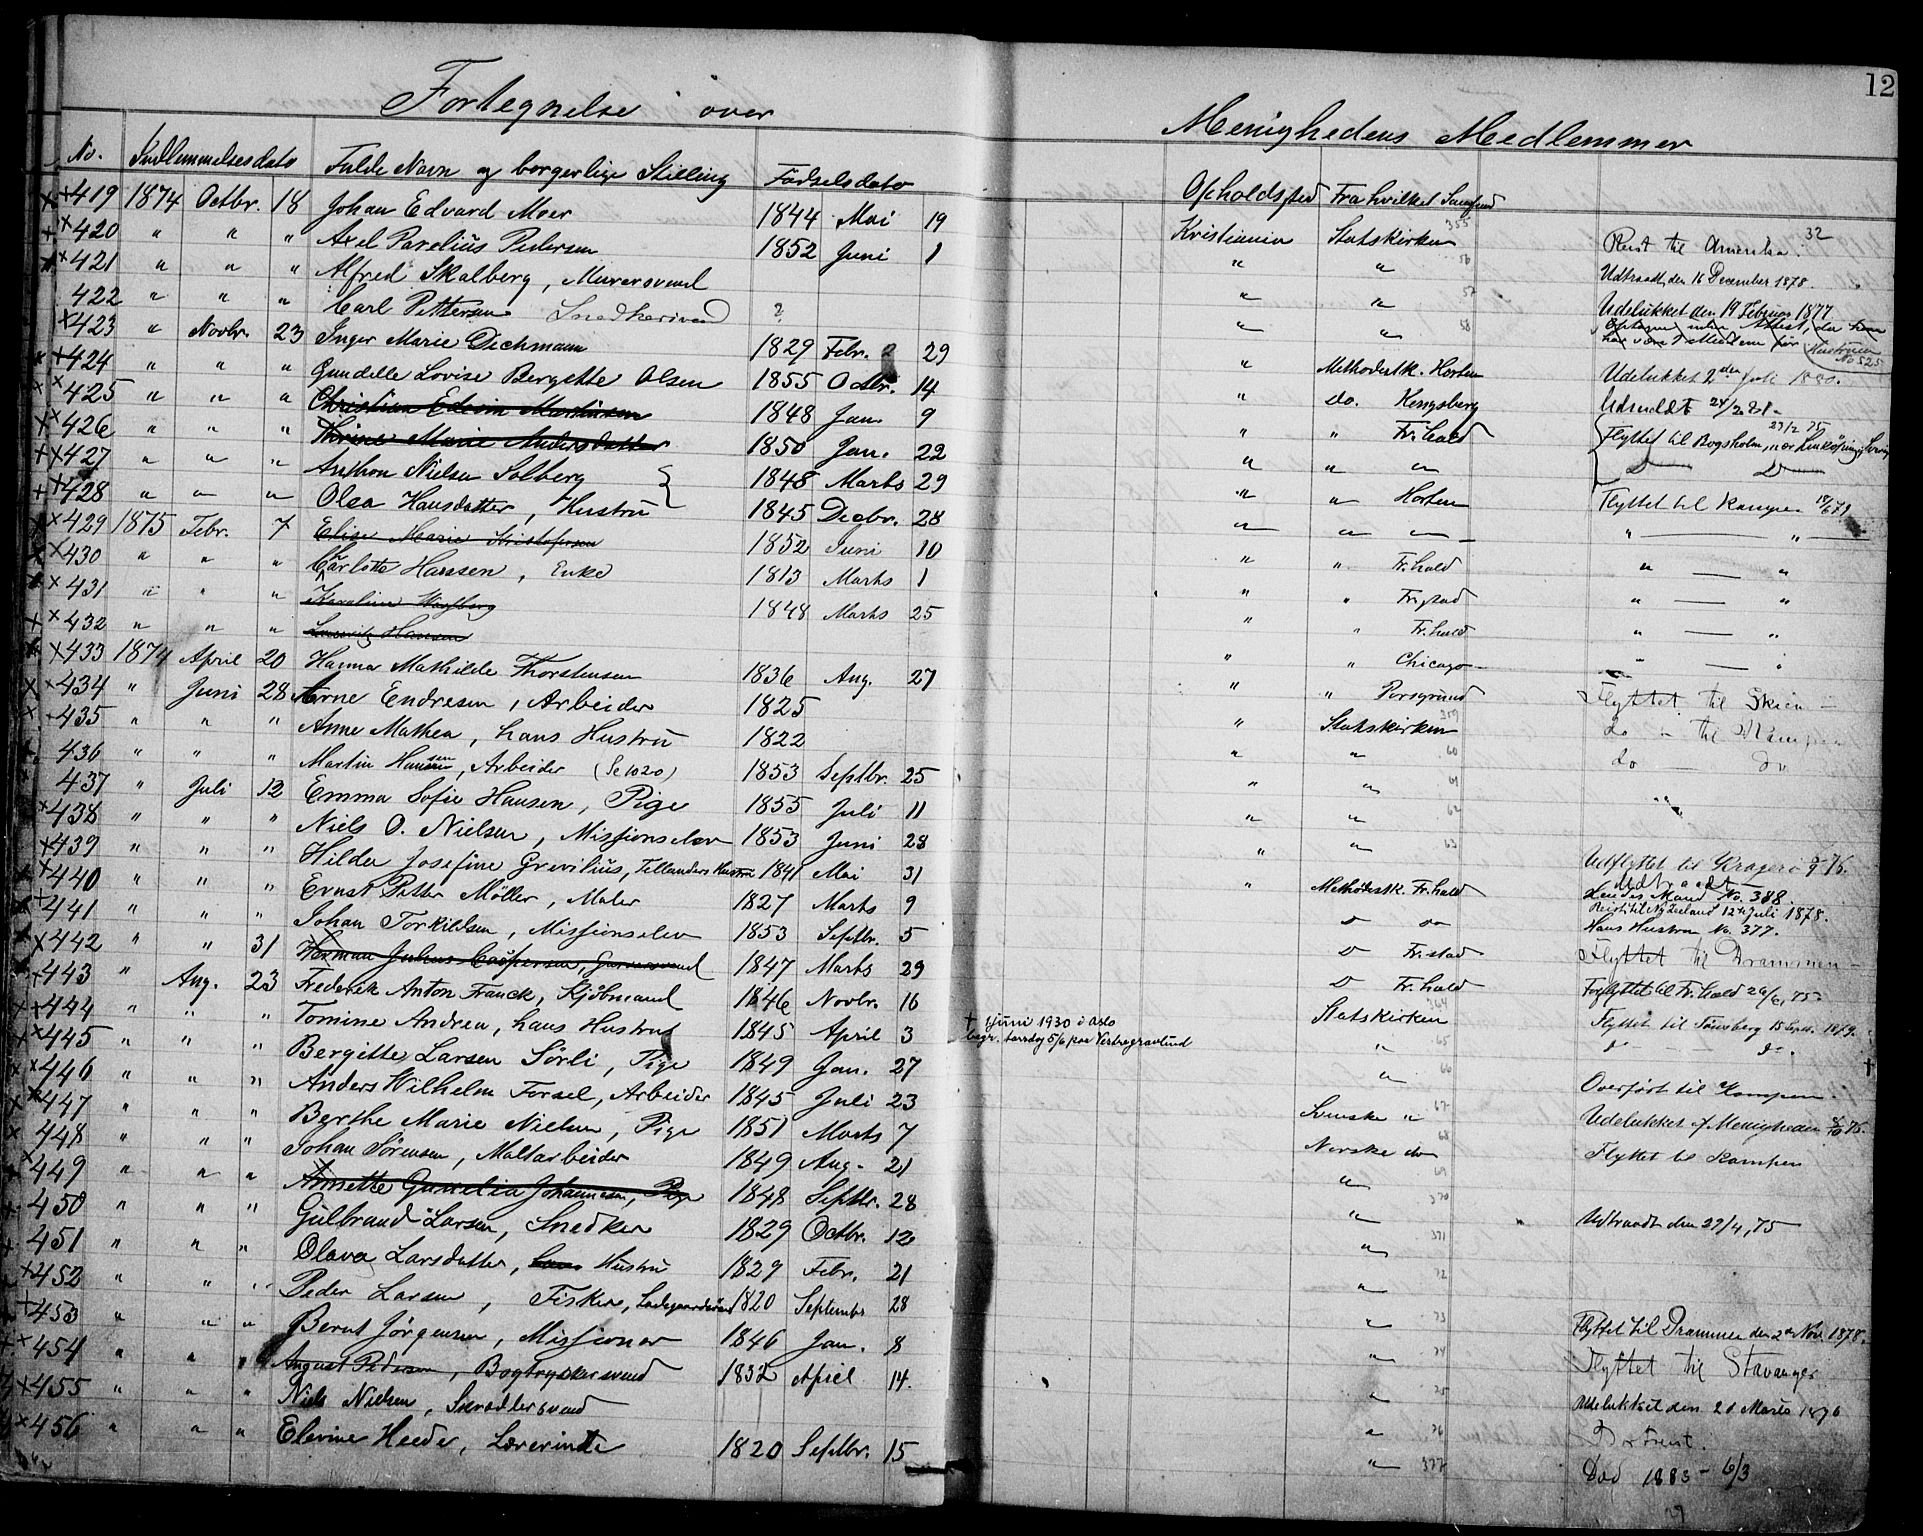 12
Fortegnelse over Menighedens Medlemmer
No. Indlemmelsesdato Fulde Navn og borgerlige Stilling Fødselsdato Opholdssted Fra hvilket Samfund
419 1874 Octbr. 18 Johan Edvard Moer 1844 Mai 19 Kristiania Statskirken 355 Reist til Amerika. 32
420 " " " Axel Parelius Pedersen 1852 Juni 1 " " 56 Udtraadt den 16 December 1878.
421 " " " Alfred Skalberg, Murersvend " " 57 Udelukket den 19 Februar 1877
422 " " " Carl Pettersen Snedkersvend ? " " 58
423 " Novbr. 23 Inger Marie Dichmann 1829 Febr. 29 " Methodistk. Horten Udelukket 2den Juli 1880.
Hustruen No 525
424 " " " Gundelle Lovise Bergette Olsen 1855 Octbr. 14 " do. Kongsberg Udmeldt 24/2 81
425 " " " Christian Edvin Martinsen 1848 Jan 9 " " Fr.hald Flyttet til Bogsholm, nær Linköping, Sverig 23/2 75
426 " " " Thrine Marie Andersdatter 1850 Jan. 22 " " "
427 " " " Anthon Nielsen Solberg 1848 Marts 29 " " Horten Flyttet til Kampen
428 " " " Olea Hansdatter, Hustru 1845 Decbr. 28 " " " " "
429 1875 Febr. 7 Elise Marie Kristofersen 1852 Juni 10 " " Fr.hald " "
430 " " " Charlotte Hansen, Enke 1813 Marts 1 " " Fr.stad " "
431 " " " Karoline Wagberg 1848 Marts 25 " " Fr.hald " "
432 " " " Lauritz Hansen " " Chicago " "
433 1874 April 20 Hanna Mathilde Thorstensen 1836 Aug. 27 " " Porsgrund Flyttet til Skien
434 " Juni 28 Arne Endresen, Arbeider 1825 " Statskirken 359 do til Kampen
435 " " " Anne Mathea, hans Hustru 1822 " " 60 do do
436 " " " Martin Hansen, Arbeider (Se 1020) 1853 Septbr. 25 " " 61
437 " Juli 12 Emma Sofie Hansen, Pige 1855 Juli 11 " " 62
438 " " " Niels O. Nielsen, Missionselev 1853 Juni 28 " " 63 Udflyttet til Kragerø
439 " " " Hilda Josefine Grevilius, Tellanders Hustru 1841 Mai 31 " Methodistk. Fr.hald Udtraadt Hendes Mand No. 388.
440 " " " Ernst Petter Möller, Maler 1827 Marts 9 " do Reist til Ny Zeeland 12te Juli 1878. Hans Hustru No. 377.
441 " " " Johan Torkildsen, Missionselev 1853 Septbr. 5 Fr.stad Flyttet til Drammen
442 " " 31 Herman Julius Caspersen, Garversvend 1847 Marts 29 Fr.hald Forflyttet til Fr.hald 26/6, 75
443 " Aug. 23 Frederik Anton Franck, Kjøbmand 1846 Novbr. 16 Statskirken 364 Flyttet til Tønsberg 15 Sept. 1879.
444 " " " Tomine Andrea, hans Hustru 1845 April 3 † 1 juni 1930 i Oslo begr. torsdag 5/6 paa Vestregravlund " 65 do do.
445 " " " Bergitte Larsen Sörli, Pige 1849 Jan. 27 " 66 Overført til Kampen †
446 " " " Anders Wilhelm Forsel, Arbeider 1845 Juli 23 Svenske " 67 Udelukket af Menigheden
447 " " " Berthe Marie Nielsen, Pige 1851 Marts 7 Norske do 68 Flyttet til Kampen
448 " " " Johan Sörensen, Maltarbeider 1849 Aug. 21 " 69
449 " " " Annette Gunelia Johannesen, Pige 1848 Septbr. 28 " 370 Udtraadt den 29/4, 75
450 " " " Gulbrand Larsen, Snedker 1829 Octbr. 12 " 371
451 " " " Olava Larsdatter, hans Hustru 1829 Febr. 21 " 72
452 " " " Peder Larsen, Fisker, Ladegaardsøen 1820 Septembr 28 " 73 Flyttet til Drammen den 2de Nov 1878.
453 " " " Bernt Jörgensen, Missionær 1846 Jan. 8 " 74 Flyttet til Stavanger
454 " " " August Pedersen, Bogtrykkersvend 1832 April 14. " 75 Udelukket den 21 Marts 1876
455 " " " Niels Nielsen, Skrædersvend " 76 Bortreist.
456 " " " Elevine Heede, Lærerinde 1820 Septbr. 15 " 377 Død 1883 - 6/3